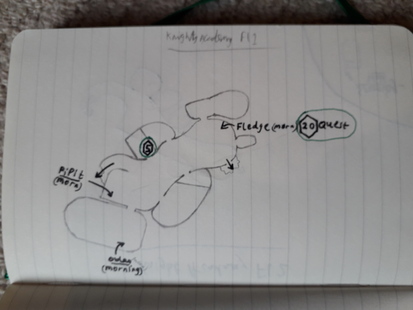 Knight Academy F1
Fledge (morn)
20
Quest
S
Pipit
(morn)
(morning)